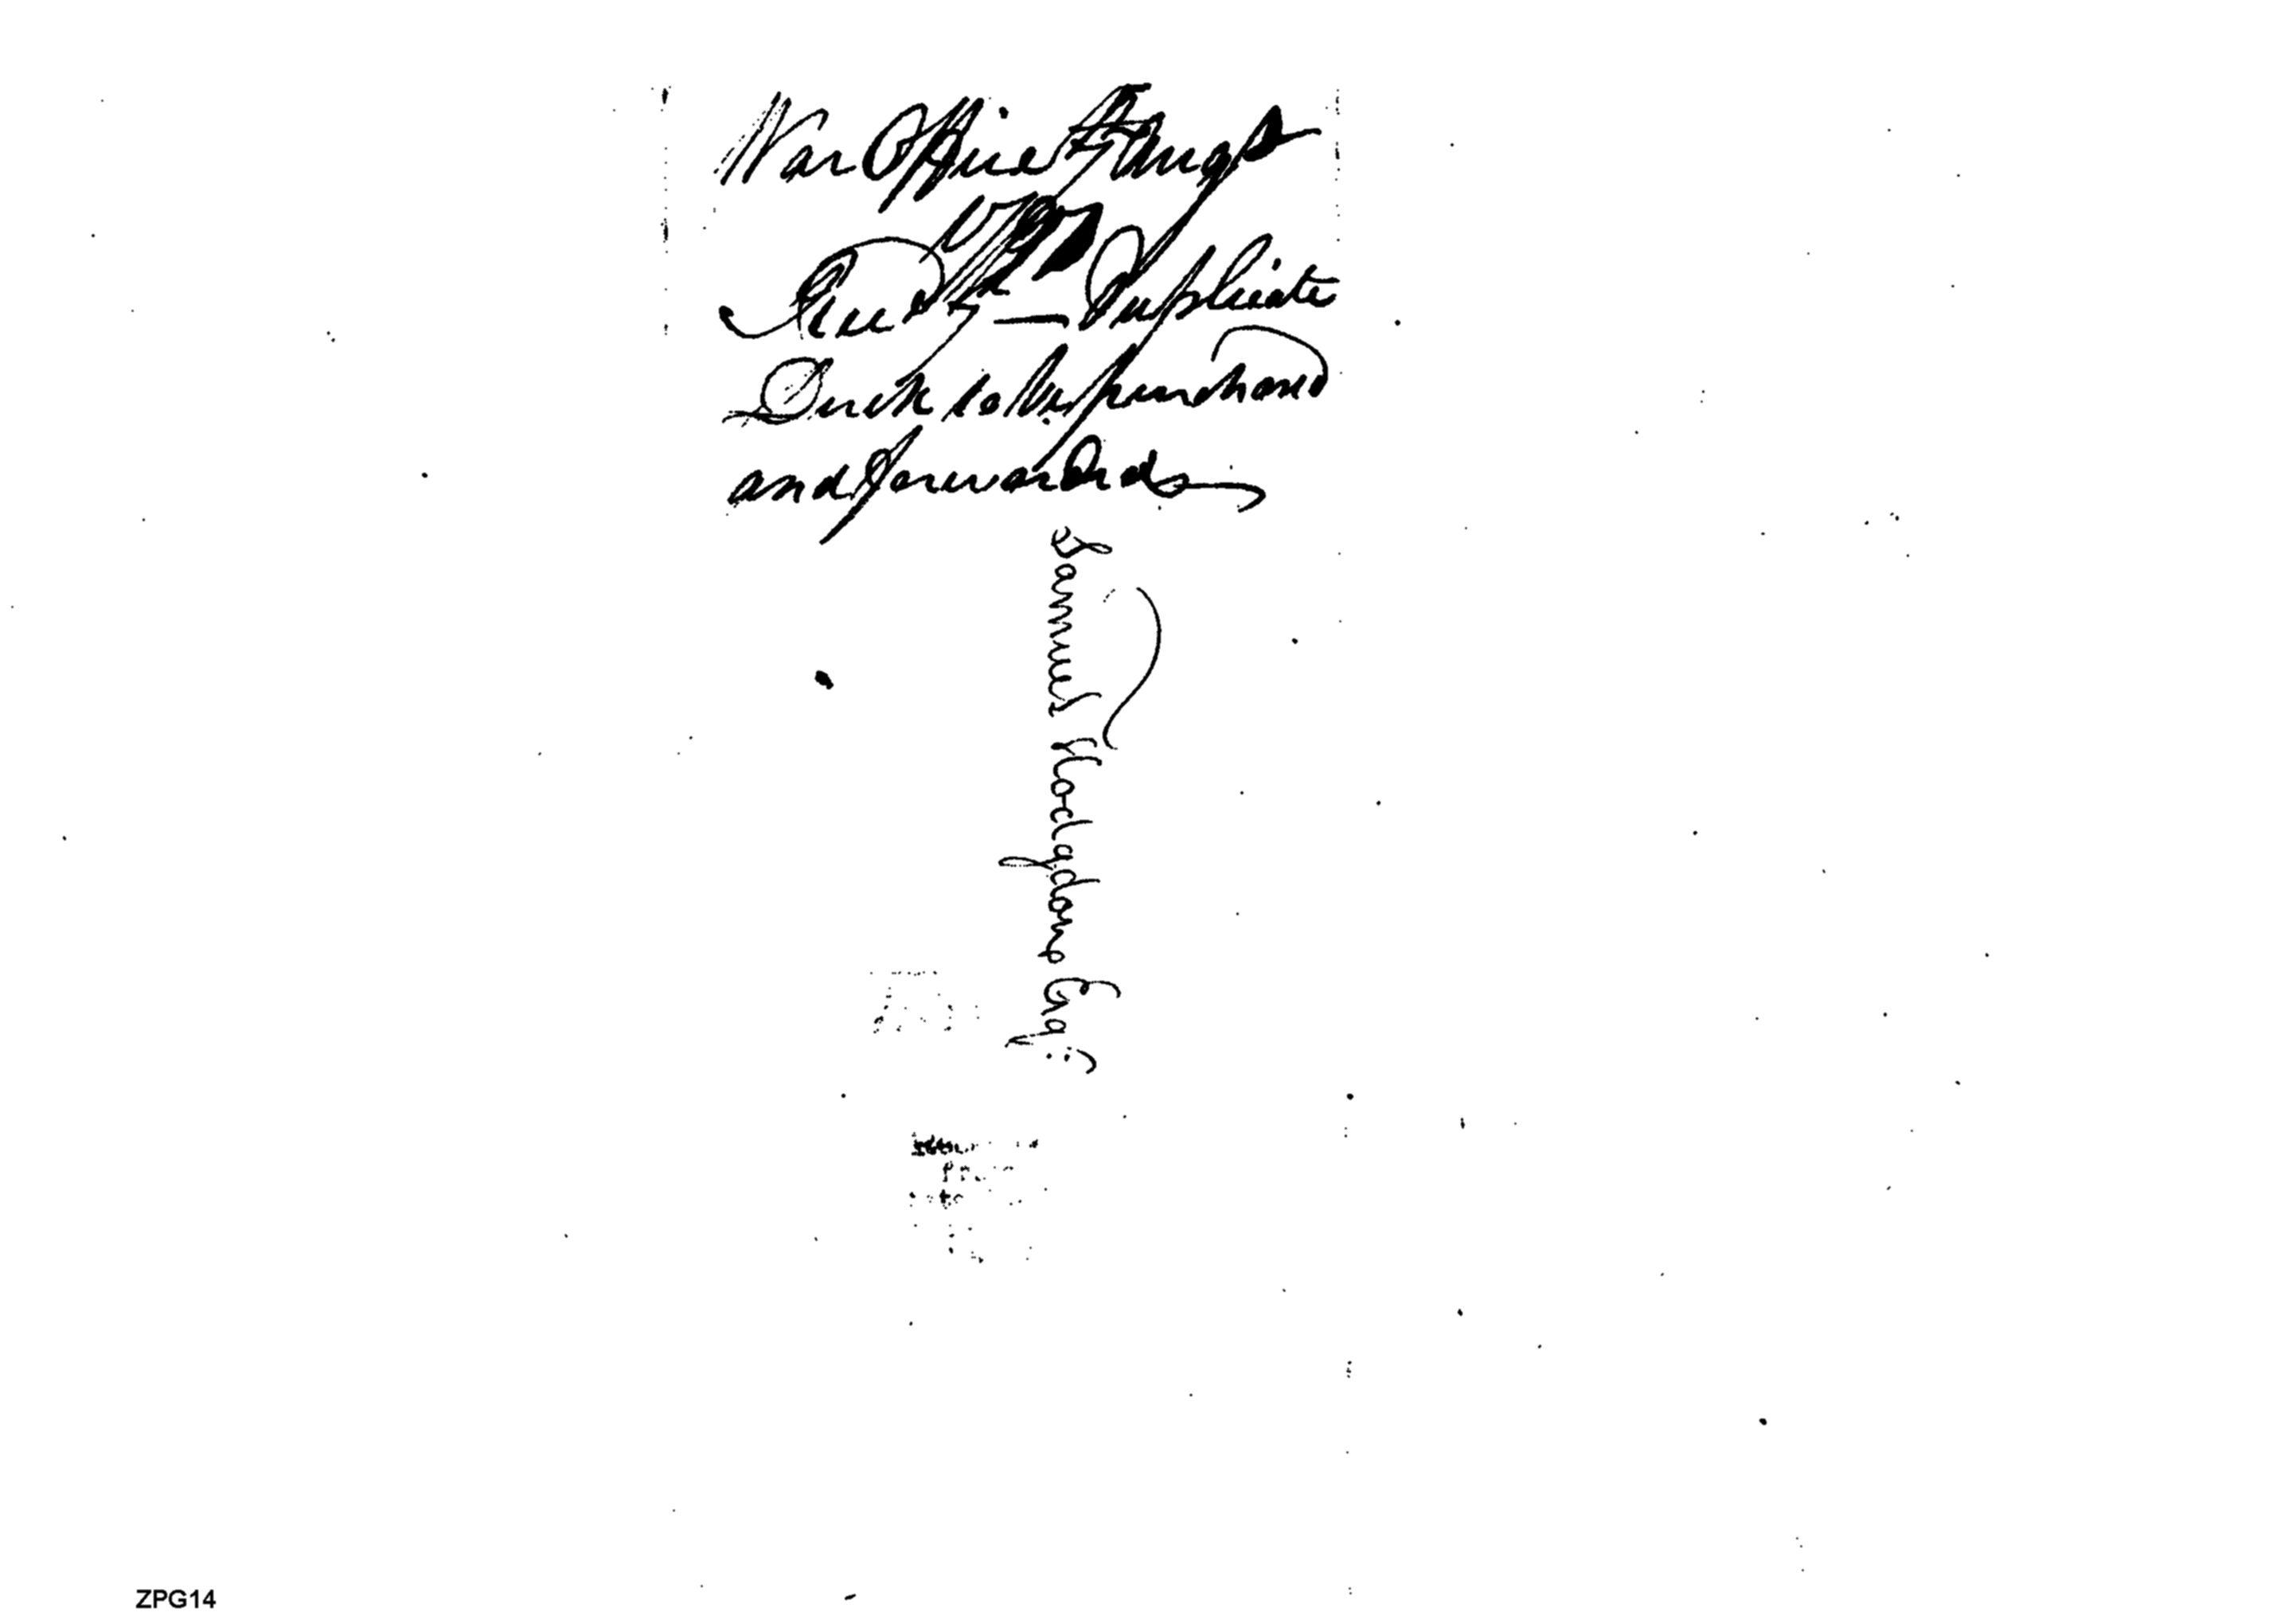 War Office 4 Augt
1797
Recd 7th — Duplicate
Duck to be purchasd
and forwarded
Samuel Hodgdon Esq:
ZPG14